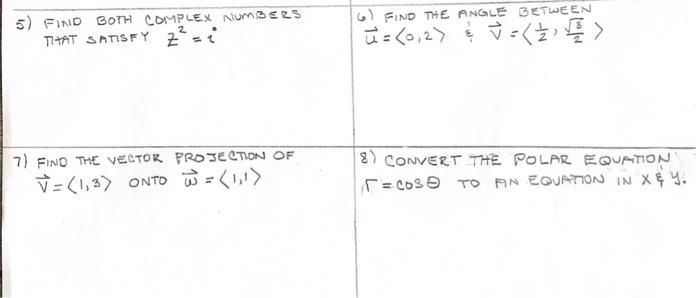 5) FIND BOTH COMPLEX NUMBERS
THAT SATISFY z² = i
6) FIND THE ANGLE BETWEEN
u⃗ = <0,2> & v⃗ = <1/2, √3/2>
7) FIND THE VECTOR PROJECTION OF
v⃗ = <1,3> ONTO w⃗ = <1,1>
8) CONVERT THE POLAR EQUATION
r = cosθ TO AN EQUATION IN X & Y.